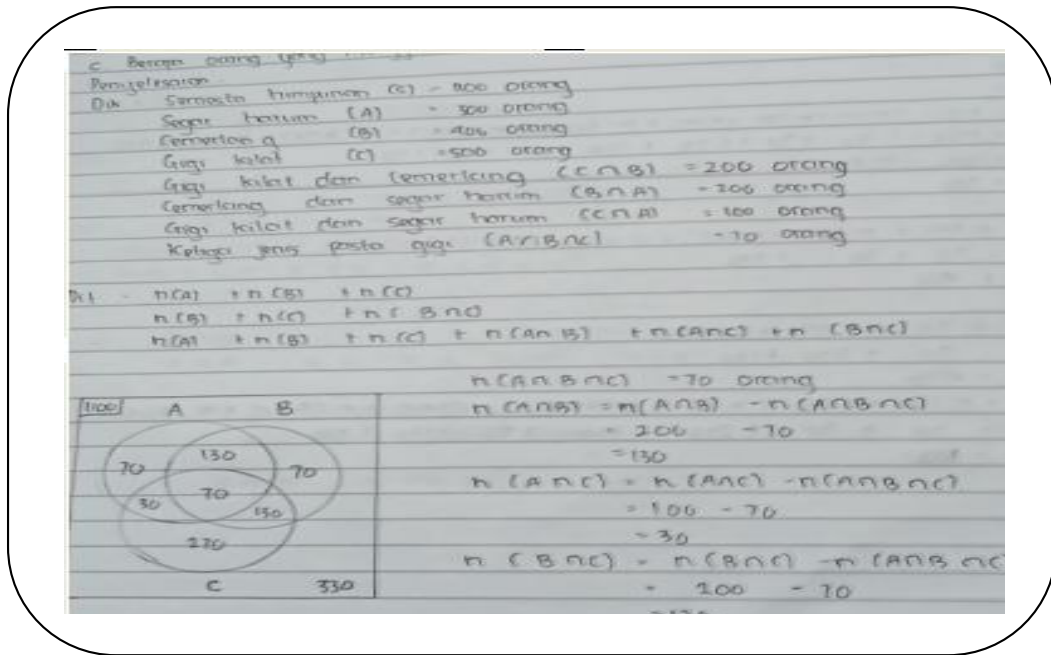 c Berapa orang yang
Penyelesaian
Dik Semesta himpunan (S) = 1100 orang
Segar harum (A) = 300 orang
Cemerlang (B) = 400 orang
Gigi kilat (C) = 500 orang
Gigi kilat dan Cemerlang (C∩B) = 200 orang
Cemerlang dan segar harum (B∩A) = 200 orang
Gigi kilat dan segar harum (C∩A) = 100 orang
Ketiga jenis pasta gigi (A∩B∩C) = 70 orang
Dit - n(A) + n(B) + n(C)
n(B) + n(C) + n( B∩C)
n(A) + n(B) + n(C) + n(A∩B) + n(A∩C) + n (B∩C)
1100 A B
70 130 70
30 70 130
270
C 330
n(A∩B∩C) = 70 orang
n(A∩B) = n(A∩B) - n(A∩B∩C)
= 200 - 70
= 130
n(A∩C) = n(A∩C) - n(A∩B∩C)
= 100 - 70
= 30
n (B∩C) = n(B∩C) - n(A∩B∩C
= 200 - 70